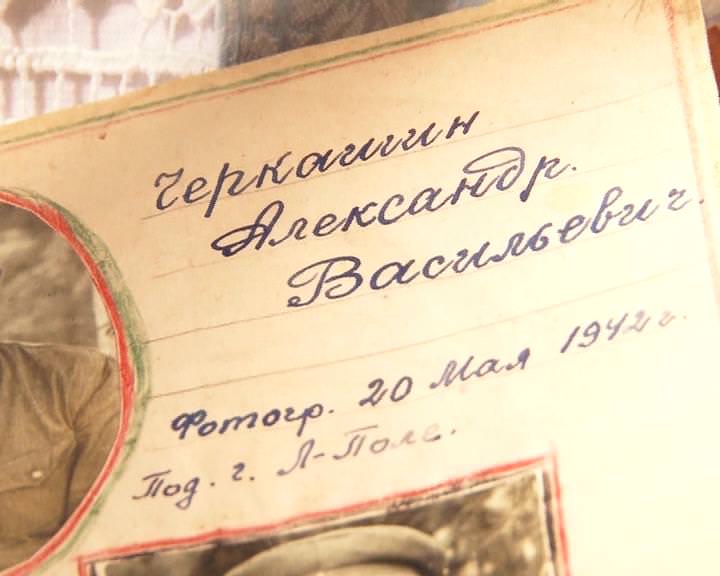 Черкашин
Александр.
Васильевич.
Фотогр. 20 Мая 1942 г.
Под. г. Л-Поле.